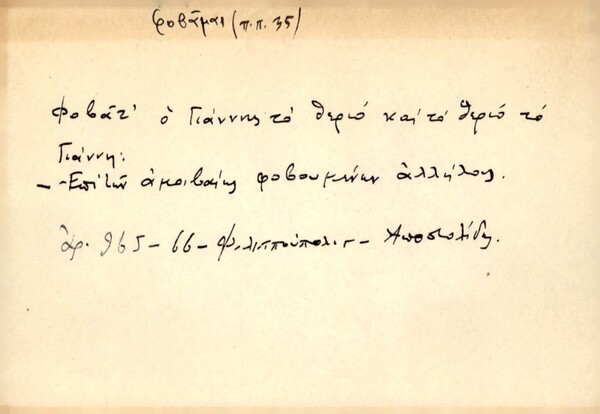 φοβᾶμαι (π.π. 35)
Φοβᾶτ' ὁ Γιάννης τὸ θεριό καὶ τὸ θεριό τό
Γιάννη:
- Ἐπὶ τῶν ἀμοιβαίως φοβουμένων ἀλλήλους.
ἀρ. 965-66 - Φιλιππούπολις - Ἀποστολίδης.